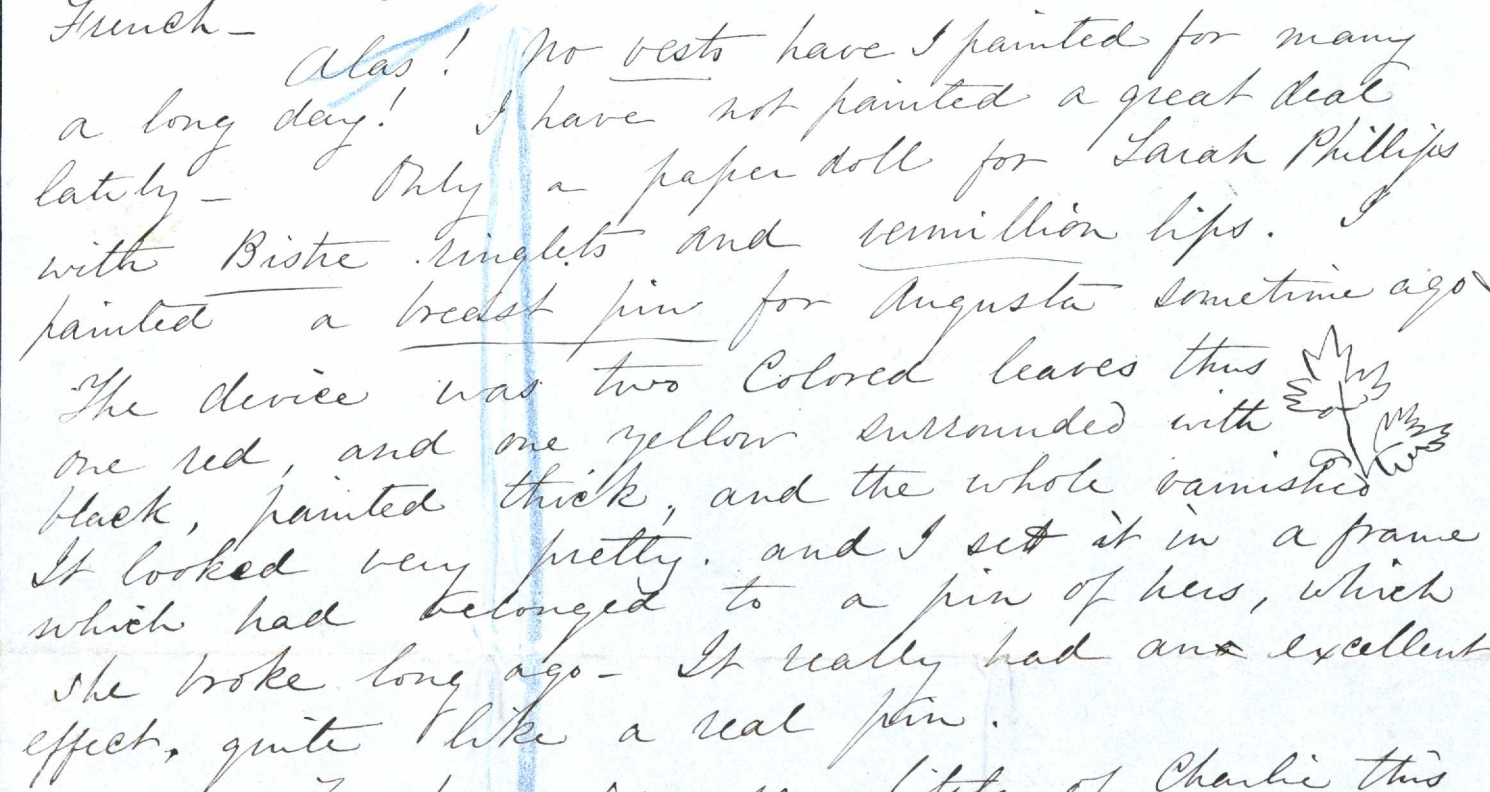 French –
Alas! No vests have I painted for many
a long day! I have not painted a great deal
lately – Only a paper doll for Sarah Phillips
with Bistre ringlets and vermillion lips. I
painted a breast pin for Augusta sometime ago
The device was two Colored leaves thus
one red, and one yellow surrounded with
black, painted thick, and the whole varnished
It looked very pretty. and I set it in a frame
which had belonged to a pin of hers, which
she broke long ago – It really had an excellent
effect, quite like a real pin.
of Charlie this